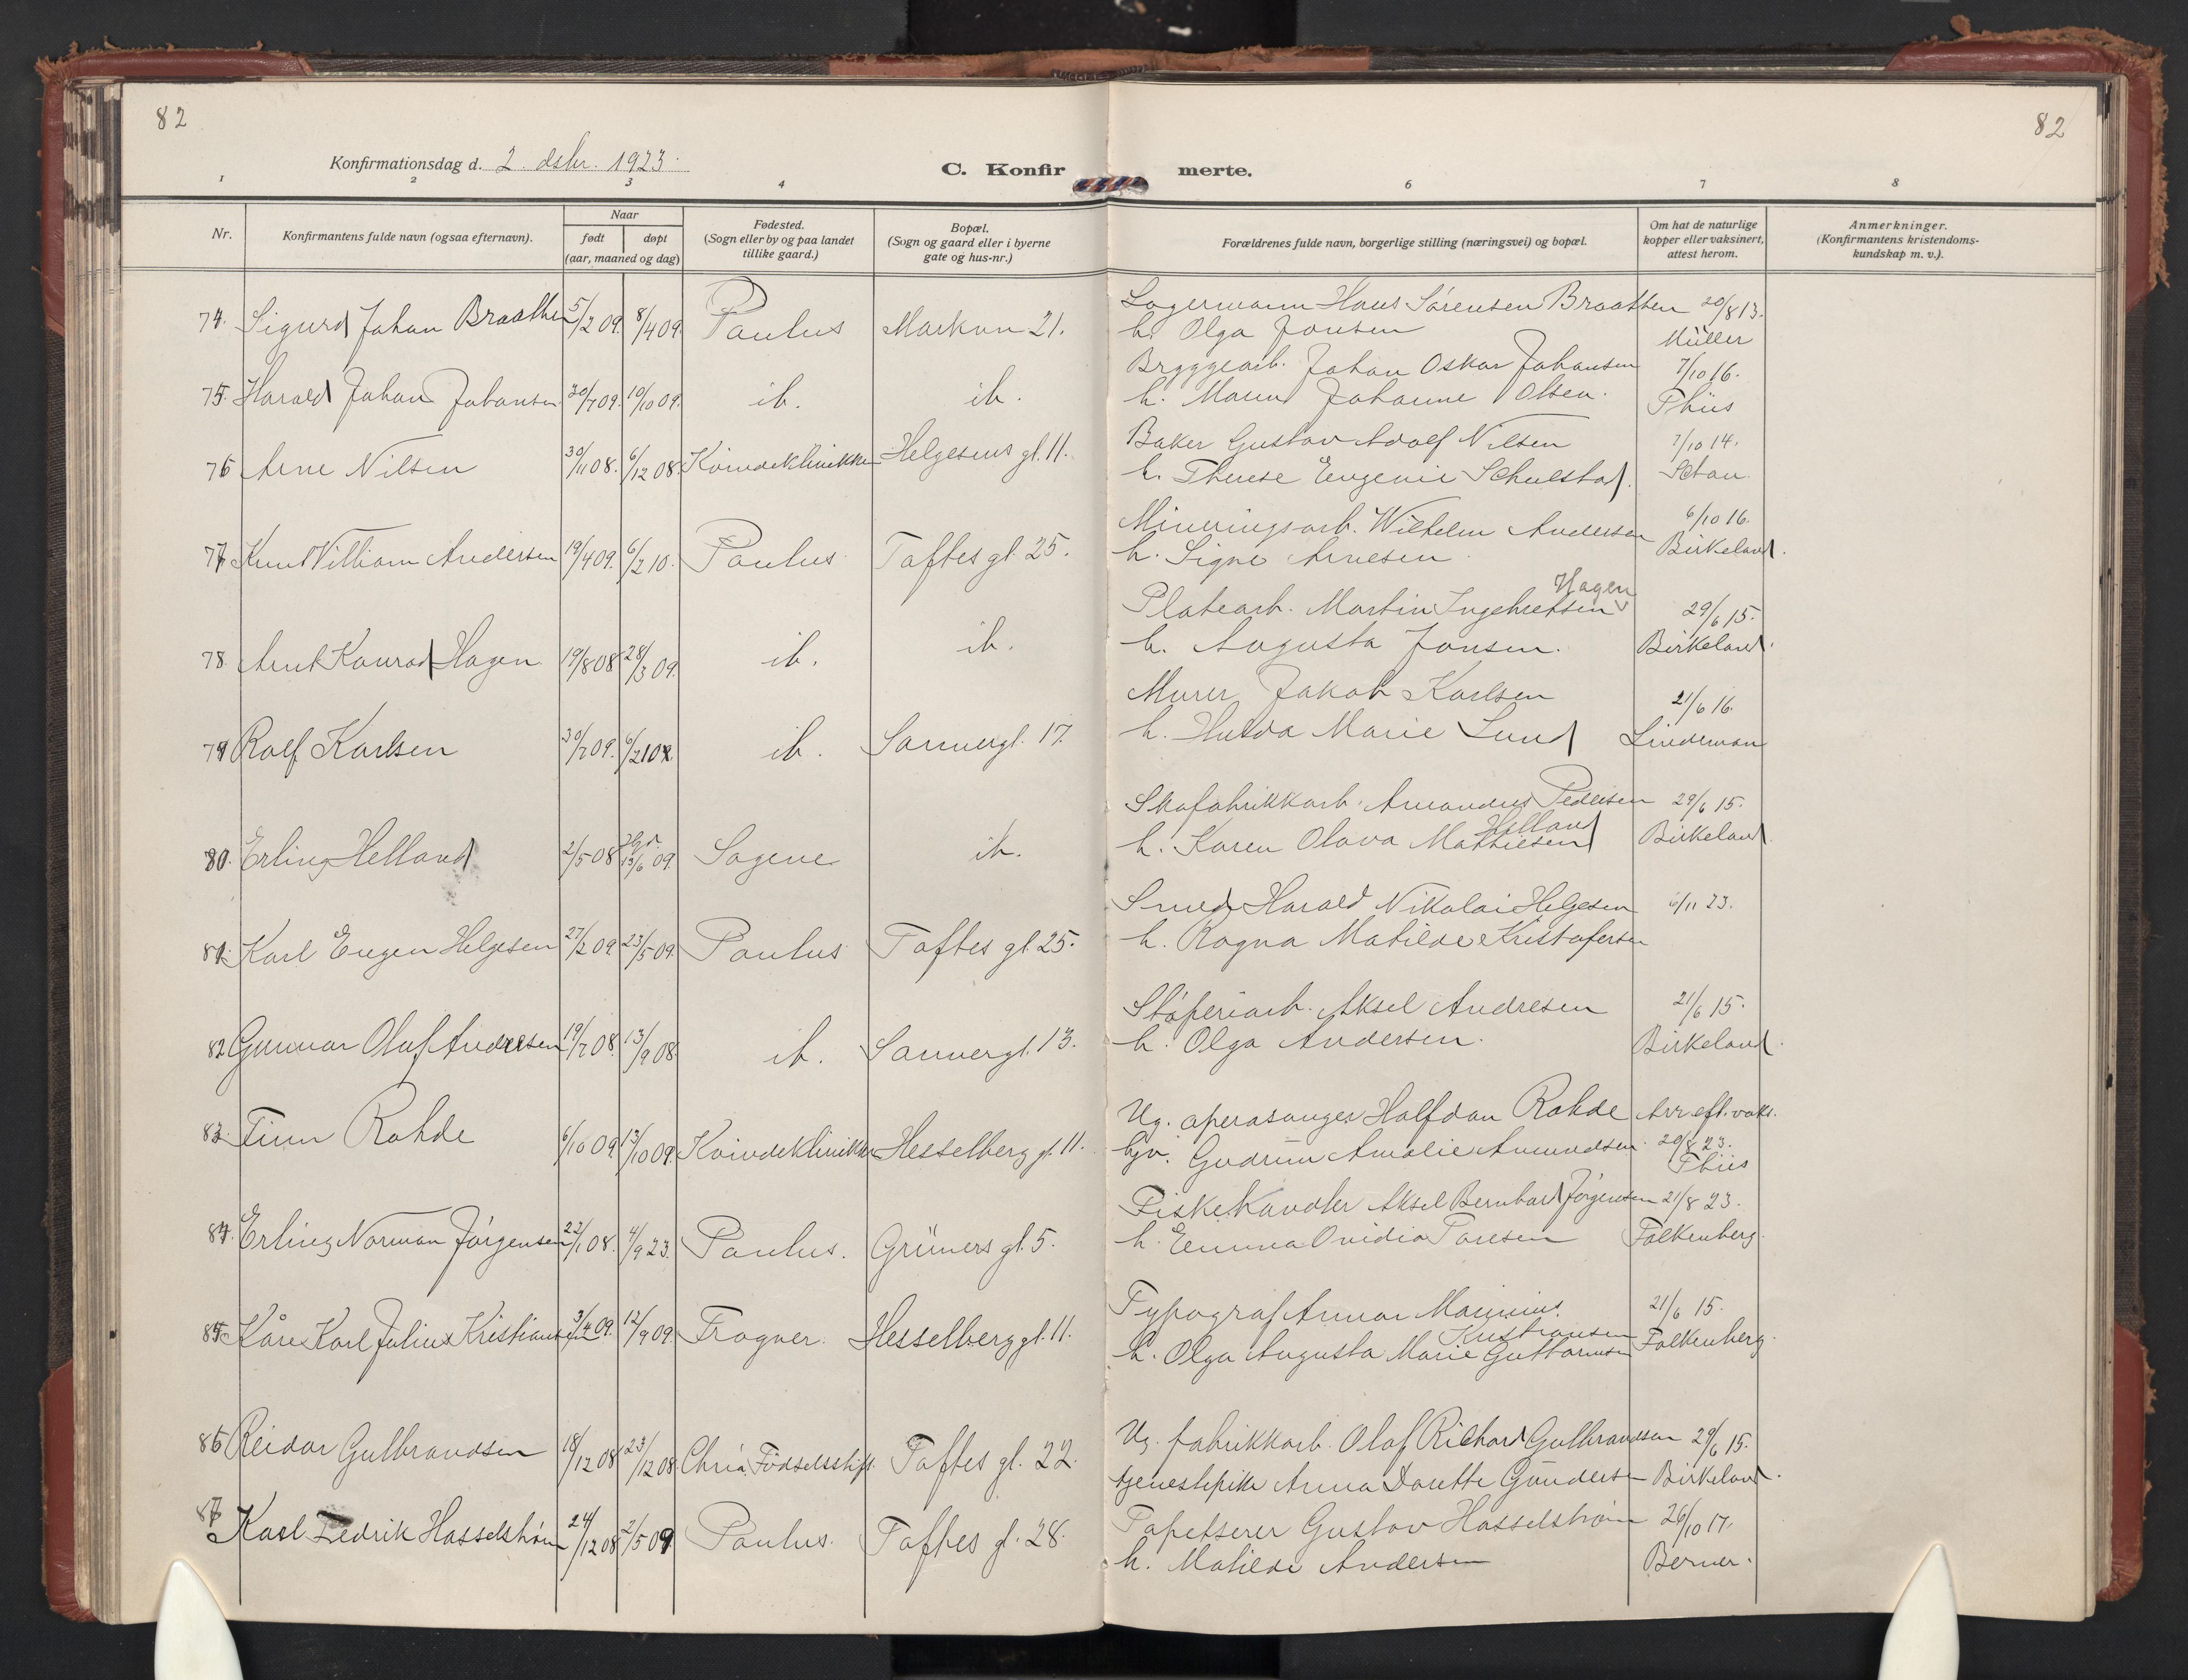 82
82
Konfirmationsdag d. 2. dsbr. 1923.
C. Konfir merte.
1 2 3 4 5 6 7 8
Nr.
Konfirmantens fulde navn (ogsaa efternavn).
Naar
født døpt
(aar, maaned og dag)
Fødested.
(Sogn eller by og paa landet
tillike gaard.)
Bopæl.
(Sogn og gaard eller i byerne
gate og hus-nr.)
Forældrenes fulde navn, borgerlige stilling (næringsvei) og bopæl.
Om hat de naturlige
kopper eller vaksinert,
attest herom.
Anmerkninger.
(Konfirmantens kristendoms-
kundskap m. v.).
74. Sigurd Johan Braathen 5/2 09. 8/4 09. Paulus Markvn 21. Lagermann Hans Sørensen Braathen 20/8 13.
h. Olga Jonsen Müller
75. Harald Johan Johansen 20/7 09. 10/10 09. ib. ib. Bryggearb. Johan Oskar Johansen 7/10 16.
h. Maren Johanne Olsen. Thiis
76 Arne Nilsen 30/11 08. 6/12 08. Kvindeklinikken Helgesens gt. 11. Baker Gustav Adolf Nilsen 7/10 14.
h. Therese Eugenie Schulstad.
77 Knut William Andersen 19/4 09. 6/2 10. Paulus Toftes gt. 25. Mineringsarb. Wilhelm Andersen 6/10 16.
h. Signe Arnesen Birkeland.
78. Arnt Konrad Hagen 19/8 08 28/3 09. ib. ib. Platearb. Martin Ingebretsen Hagen 29/6 15.
h. Augusta Jonsen. Birkeland.
79 Rolf Karlsen 30/7 09. 6/2 10. ib. Sannergt. 17. Murer Jakob Karlsen 21/6 16.
h. Hulda Marie Lund Lindeman
80. Erling Helland 2/5 08 13/6 09. Sagene ib. Skofabrikkarb. Amandus Pedersen Helland 29/6 15.
h. Karen Olava Mathiesen Birkeland.
81. Karl Eugen Helgesen 27/2 09 23/5 09. Paulus Toftes gt. 25. Smed Harald Nikolai Helgesen 6/11 23.
h. Ragna Matilde Kristofersen
82. Gunnar Oluf Andresen 19/7 08. 13/9 08. ib. Sannergt. 13. Støperiarb. Aksel Andresen 21/6 15.
h. Olga Andersen. Birkeland.
83. Finn Rohde 6/10 09. 13/10 09. Kvindeklinikken Hesselberg gt. 11. Ug. operasanger Halfdan Rohde Arr eft. vaks.
Gudrun Amalie Amundsen. 20/8 23.
Thiis
84. Erling Norman Jørgensen 22/1 08. 4/9 23. Paulus. Grüners gt. 5. Fiskehandler Aksel Bernhard Jørgensen 21/8 23.
h. Emma Ovidia Falkenberg.
85. Kåre Karl Julius Kristiansen 3/4 09. 12/9 09. Frogner. Hesselberg gt. 11. Typograf Annar Marinius Kristiansen 21/6 15.
h. Olga Augusta Marie Guttormsen Falkenberg.
86 Reidar Gulbrandsen 18/12 08 23/12 08. Chria. Födselsstift. Toftes gt. 22. Ug. fabrikkarb. Olaf Richard Gulbrandsen 29/6 15.
tjenestepike Anna Dorette Gundersen Birkeland.
87 Karl Fredrik Hasselstrøm 24/12 08 2/5 09 Paulus. Toftes gt. 28. Tapetserer Gustav Hasselstrøm 26/10 17.
h. Matilde Andersen Berner.